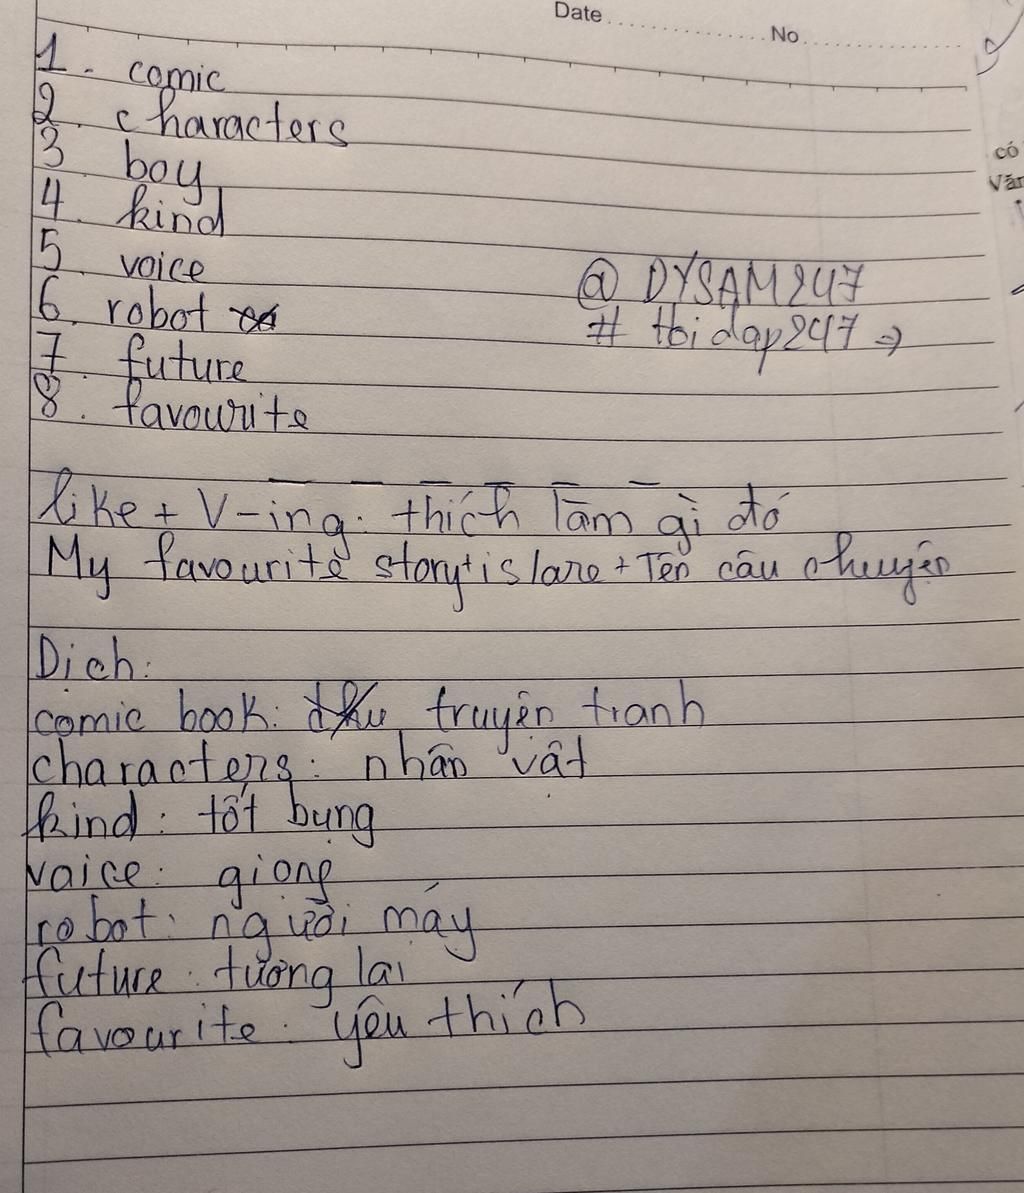 Date
No
có
Văn
1. comic
2. characters
3 boy
4. kind
5. voice
6. robot
7. future
8. favourite
@ DYSAM247
# hoidap247 =>
like + V-ing: thích làm gì đó
My favourite story + is/are + Tên câu chuyện
Dịch:
comic book: truyện tranh
characters: nhân vật
kind: tốt bụng
voice: giọng
robot: người máy
future: tương lai
favourite: yêu thích